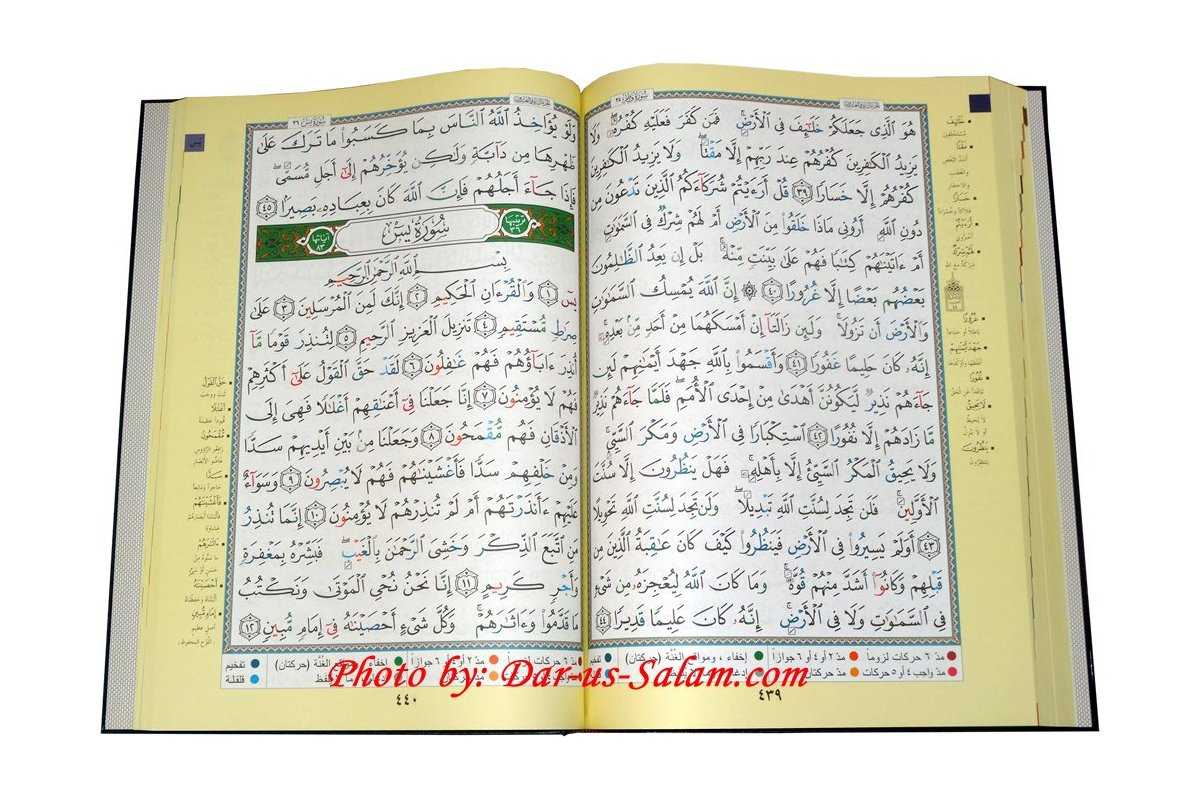 سُورَةُ فَاطِرٍ ٣٥
هُوَ ٱلَّذِى جَعَلَكُمْ خَلَـٰٓئِفَ فِى ٱلْأَرْضِ ۚ فَمَن كَفَرَ فَعَلَيْهِ كُفْرُهُۥ ۖ وَلَا
يَزِيدُ ٱلْكَـٰفِرِينَ كُفْرُهُمْ عِندَ رَبِّهِمْ إِلَّا مَقْتًا ۖ وَلَا يَزِيدُ ٱلْكَـٰفِرِينَ
كُفْرُهُمْ إِلَّا خَسَارًا ٣٩ قُلْ أَرَءَيْتُمْ شُرَكَآءَكُمُ ٱلَّذِينَ تَدْعُونَ مِن
دُونِ ٱللَّهِ أَرُونِى مَاذَا خَلَقُوا۟ مِنَ ٱلْأَرْضِ أَمْ لَهُمْ شِرْكٌ فِى ٱلسَّمَـٰوَٰتِ
أَمْ ءَاتَيْنَـٰهُمْ كِتَـٰبًا فَهُمْ عَلَىٰ بَيِّنَتٍ مِّنْهُ ۚ بَلْ إِن يَعِدُ ٱلظَّـٰلِمُونَ
بَعْضُهُم بَعْضًا إِلَّا غُرُورًا ٤٠ ۞ إِنَّ ٱللَّهَ يُمْسِكُ ٱلسَّمَـٰوَٰتِ
وَٱلْأَرْضَ أَن تَزُولَا ۚ وَلَئِن زَالَتَآ إِنْ أَمْسَكَهُمَا مِنْ أَحَدٍ مِّنۢ بَعْدِهِۦٓ ۚ
إِنَّهُۥ كَانَ حَلِيمًا غَفُورًا ٤١ وَأَقْسَمُوا۟ بِٱللَّهِ جَهْدَ أَيْمَـٰنِهِمْ لَئِن
جَآءَهُمْ نَذِيرٌ لَّيَكُونُنَّ أَهْدَىٰ مِنْ إِحْدَى ٱلْأُمَمِ ۖ فَلَمَّا جَآءَهُمْ نَذِيرٌ
مَّا زَادَهُمْ إِلَّا نُفُورًا ٤٢ ٱسْتِكْبَارًا فِى ٱلْأَرْضِ وَمَكْرَ ٱلسَّيِّئِ ۚ
وَلَا يَحِيقُ ٱلْمَكْرُ ٱلسَّيِّئُ إِلَّا بِأَهْلِهِۦ ۚ فَهَلْ يَنظُرُونَ إِلَّا سُنَّتَ
ٱلْأَوَّلِينَ ۚ فَلَن تَجِدَ لِسُنَّتِ ٱللَّهِ تَبْدِيلًا ۖ وَلَن تَجِدَ لِسُنَّتِ ٱللَّهِ تَحْوِيلًا
٤٣ أَوَلَمْ يَسِيرُوا۟ فِى ٱلْأَرْضِ فَيَنظُرُوا۟ كَيْفَ كَانَ عَـٰقِبَةُ ٱلَّذِينَ مِن
قَبْلِهِمْ وَكَانُوٓا۟ أَشَدَّ مِنْهُمْ قُوَّةً ۚ وَمَا كَانَ ٱللَّهُ لِيُعْجِزَهُۥ مِن شَىْءٍ
فِى ٱلسَّمَـٰوَٰتِ وَلَا فِى ٱلْأَرْضِ ۚ إِنَّهُۥ كَانَ عَلِيمًا قَدِيرًا ٤٤
مدّ ٦ حركات لزوماً مدّ ٢ أو ٤ أو ٦ جوازاً إخفاء ، ومواقع الغُنَّة (حركتان)
مدّ واجب ٤ أو ٥ حركات مدّ حركتان
٤٣٩
سُورَةُ يسٓ ٣٦
وَلَوْ يُؤَاخِذُ ٱللَّهُ ٱلنَّاسَ بِمَا كَسَبُوا۟ مَا تَرَكَ عَلَىٰ
ظَهْرِهَا مِن دَآبَّةٍ وَلَـٰكِن يُؤَخِّرُهُمْ إِلَىٰٓ أَجَلٍ مُّسَمًّى ۖ
فَإِذَا جَآءَ أَجَلُهُمْ فَإِنَّ ٱللَّهَ كَانَ بِعِبَادِهِۦ بَصِيرًۢا ٤٥
ترتيبها ٣٦ سُورَةُ يسٓ آياتها ٨٣
بِسْمِ ٱللَّهِ ٱلرَّحْمَـٰنِ ٱلرَّحِيمِ
يسٓ ١ وَٱلْقُرْءَانِ ٱلْحَكِيمِ ٢ إِنَّكَ لَمِنَ ٱلْمُرْسَلِينَ ٣ عَلَىٰ
صِرَٰطٍ مُّسْتَقِيمٍ ٤ تَنزِيلَ ٱلْعَزِيزِ ٱلرَّحِيمِ ٥ لِتُنذِرَ قَوْمًا مَّآ
أُنذِرَ ءَابَآؤُهُمْ فَهُمْ غَـٰفِلُونَ ٦ لَقَدْ حَقَّ ٱلْقَوْلُ عَلَىٰٓ أَكْثَرِهِمْ
فَهُمْ لَا يُؤْمِنُونَ ٧ إِنَّا جَعَلْنَا فِىٓ أَعْنَـٰقِهِمْ أَغْلَـٰلًا فَهِىَ إِلَى
ٱلْأَذْقَانِ فَهُم مُّقْمَحُونَ ٨ وَجَعَلْنَا مِنۢ بَيْنِ أَيْدِيهِمْ سَدًّا
وَمِنْ خَلْفِهِمْ سَدًّا فَأَغْشَيْنَـٰهُمْ فَهُمْ لَا يُبْصِرُونَ ٩ وَسَوَآءٌ
عَلَيْهِمْ ءَأَنذَرْتَهُمْ أَمْ لَمْ تُنذِرْهُمْ لَا يُؤْمِنُونَ ١٠ إِنَّمَا تُنذِرُ
مَنِ ٱتَّبَعَ ٱلذِّكْرَ وَخَشِىَ ٱلرَّحْمَـٰنَ بِٱلْغَيْبِ ۖ فَبَشِّرْهُ بِمَغْفِرَةٍ
وَأَجْرٍ كَرِيمٍ ١١ إِنَّا نَحْنُ نُحْىِ ٱلْمَوْتَىٰ وَنَكْتُبُ
مَا قَدَّمُوا۟ وَءَاثَـٰرَهُمْ ۚ وَكُلَّ شَىْءٍ أَحْصَيْنَـٰهُ فِىٓ إِمَامٍ مُّبِينٍ ١٢
مدّ ٦ حركات لزوماً مدّ ٢ أو ٤ أو ٦ جوازاً الغُنَّة (حركتان) تفخيم
قلقلة
٤٤٠
Photo by: Dar-us-Salam.com